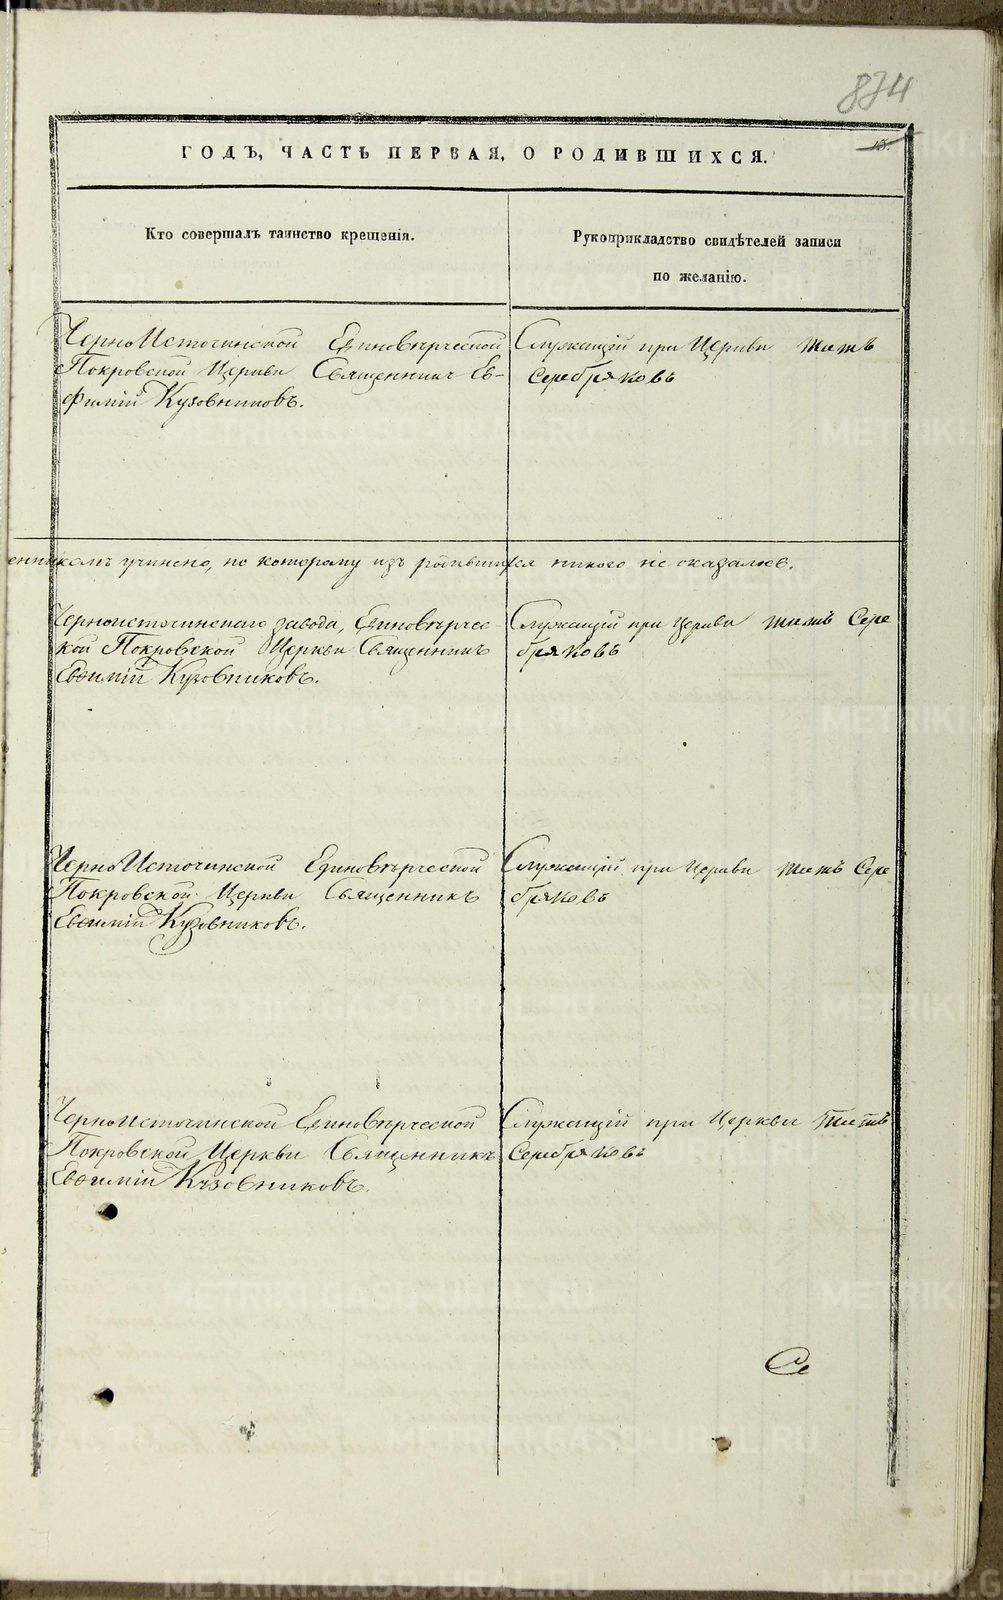 874
13.
ГОДЪ, ЧАСТЬ ПЕРВАЯ, О РОДИВШИХСЯ.
Кто совершалъ таинство крещенія.
Рукоприкладство свидѣтелей записи
по желанію.
ЧерноИсточинской Единовѣрческой
Покровской Церкви Священникъ Ев-
фимій Кузовниковъ.
Служащій при Церкви Титъ
Серебряковъ
енникомъ учинено, по которому изъ родившихся никого не оказалось.
Черноисточинскаго завода, Единовѣрчес-
кой Покровской Церкви Священникъ
Евѳимій Кузовниковъ.
Служащій при Церкви Титъ Сере
бряковъ
ЧерноИсточинской Единовѣрческой
Покровской Церкви Священникъ
Евѳимій Кузовниковъ.
Служащій при Церкви Титъ Сере
бряковъ
Черноисточинской Единовѣрческой
Покровской Церкви Священникъ
Евѳимій Кузовниковъ.
Служащій при Церкви Титъ
Серебряковъ
Се
METRIKI.GASO-URAL.RU